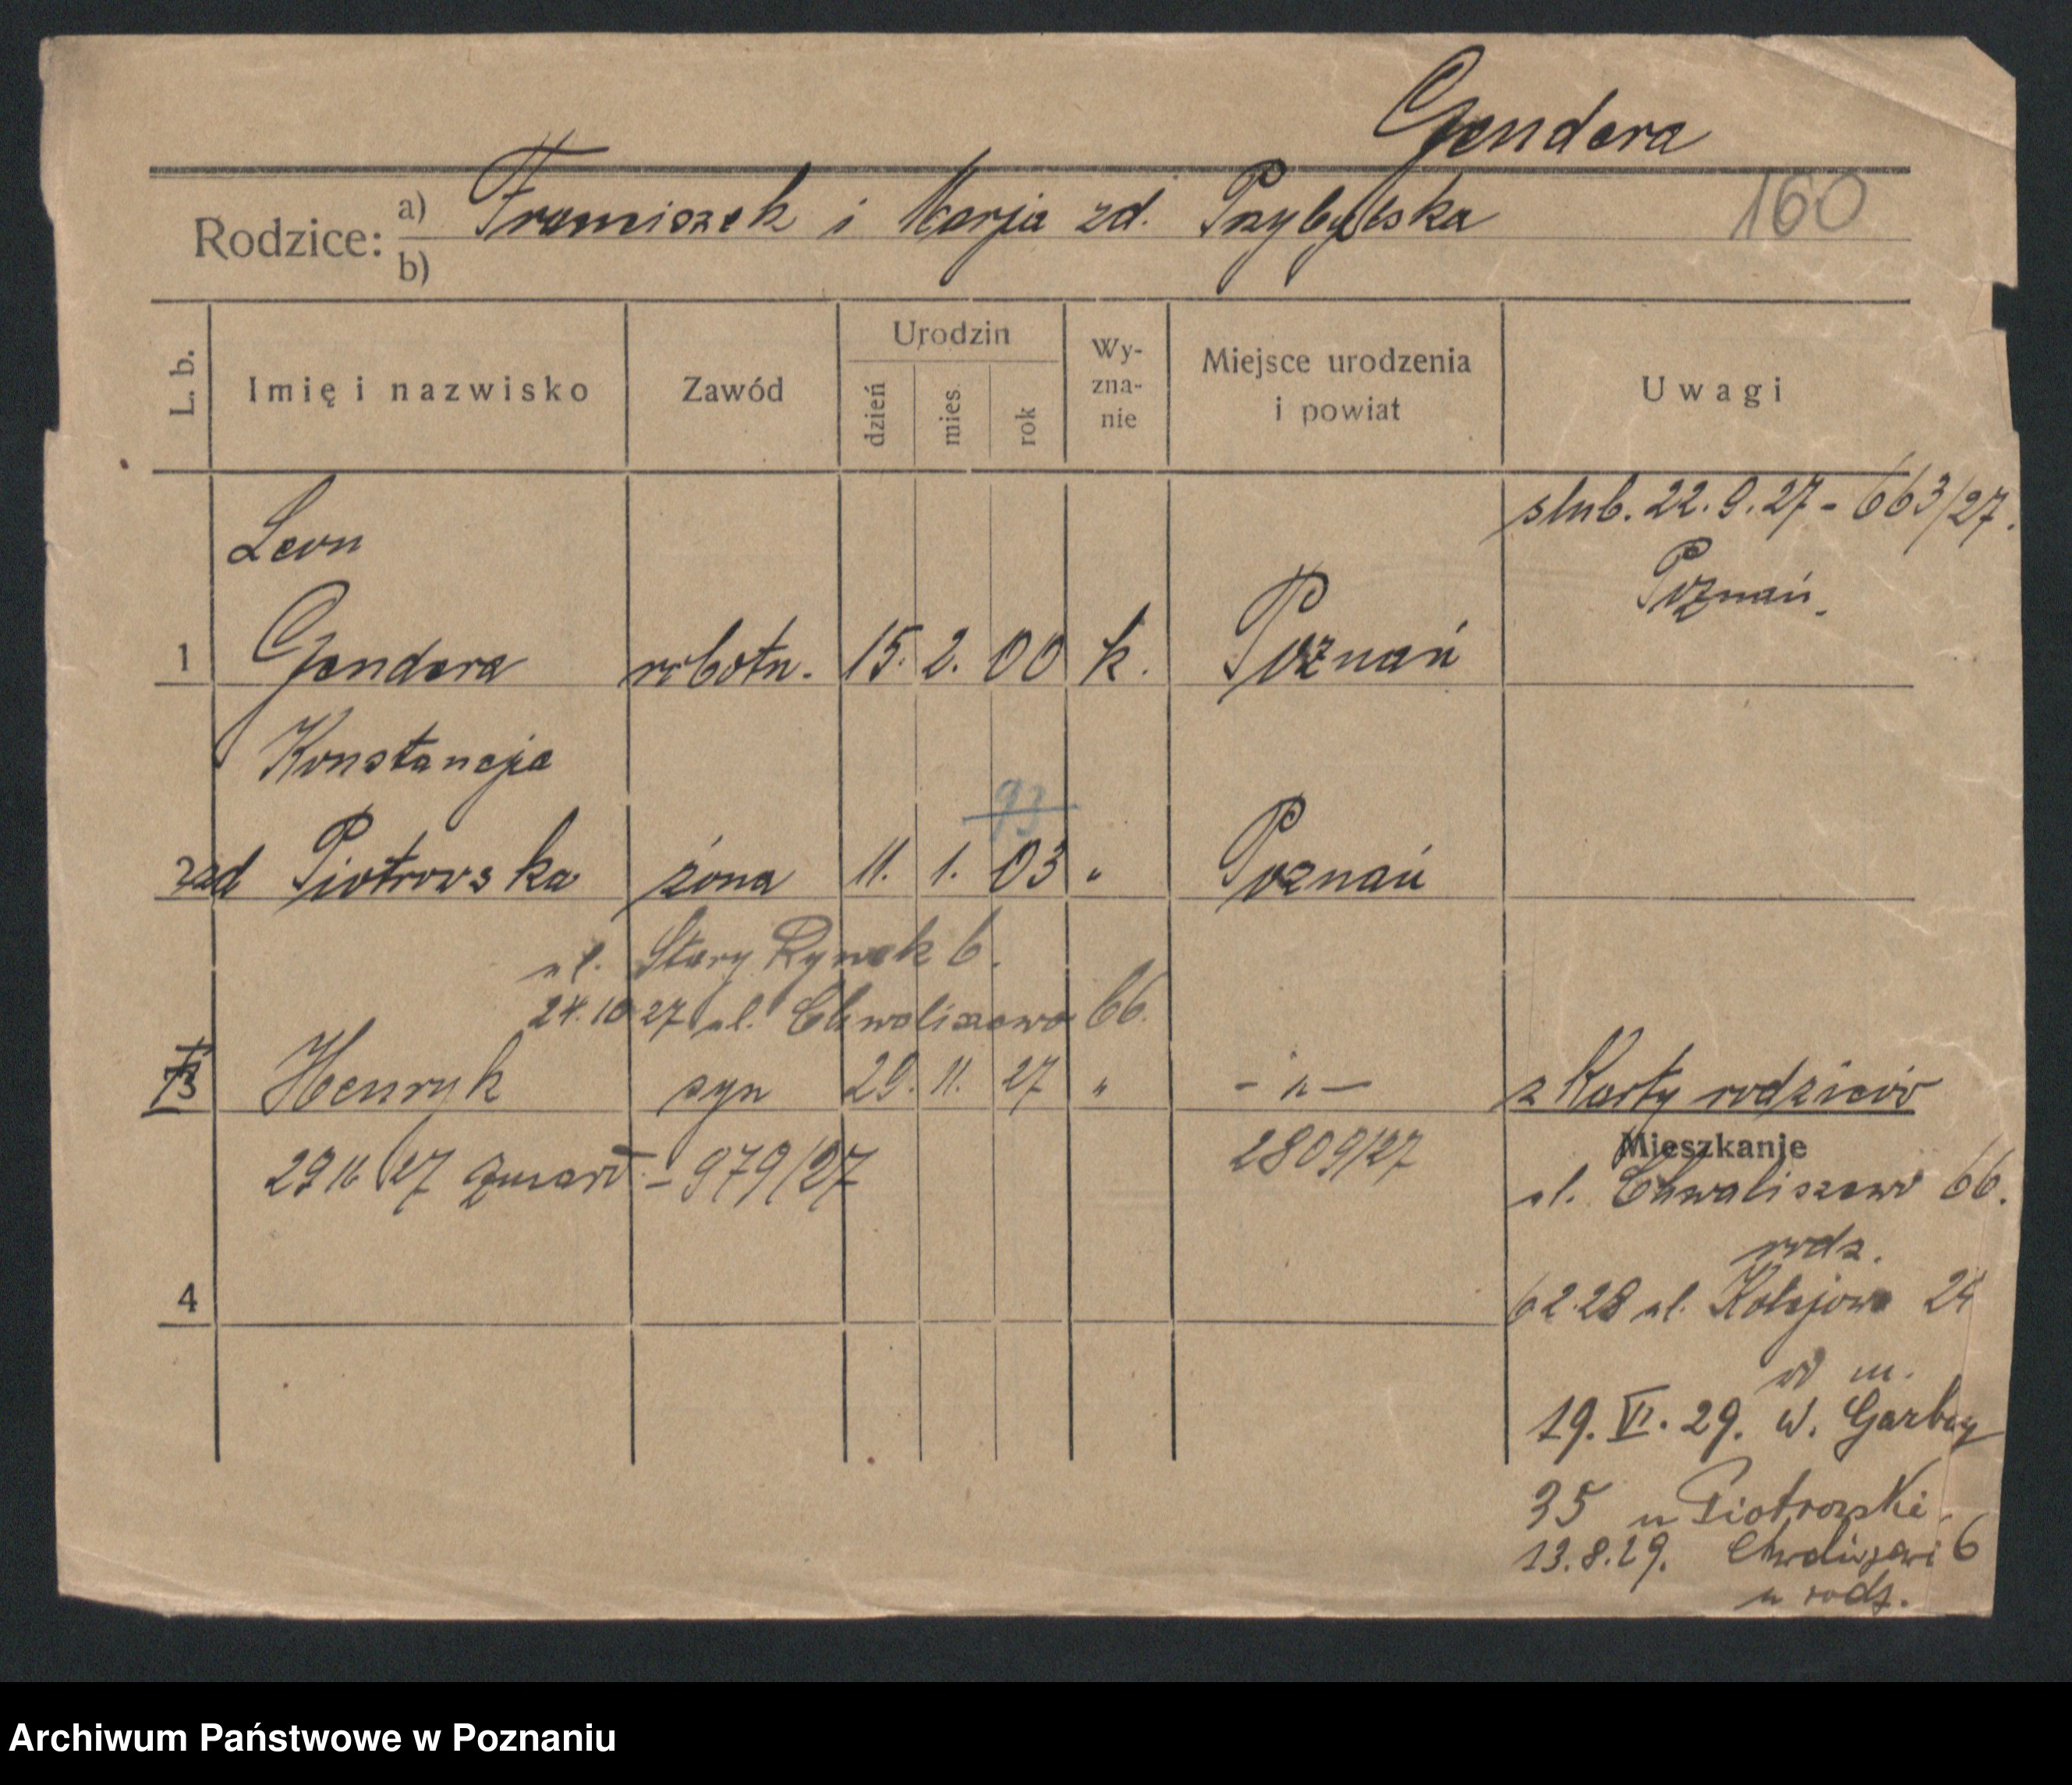 Gendera
160
Rodzice: a) Franciszek i Marja zd. Przybylska
b)
L. b. Imię i nazwisko Zawód Urodzin dzień mies. rok Wyznanie Miejsce urodzenia i powiat Uwagi
ślub. 22.9.27 - 663/27.
Poznań.
Leon
1 Gendera robotn. 15. 2. 00 k. Poznań
Konstancja
93
zd Piotrowska żona 11. 1. 03 " Poznań
ul. Stary Rynek 6.
24.10 27 ul. Chwaliszewo 66.
† 3 Henryk syn 29. 11. 27 " - " - z Karty rodziców
29 11 27 zmarł - 979/27 2809/27
Mieszkanie
ul. Chwaliszewo 66.
rodz.
4
6 2.28 ul. Kolejowa 24
w m.
19. VI. 29. W. Garbary
35 u Piotrowski.
13.8.29. Chwaliszewo 6
u rodz.
Archiwum Państwowe w Poznaniu